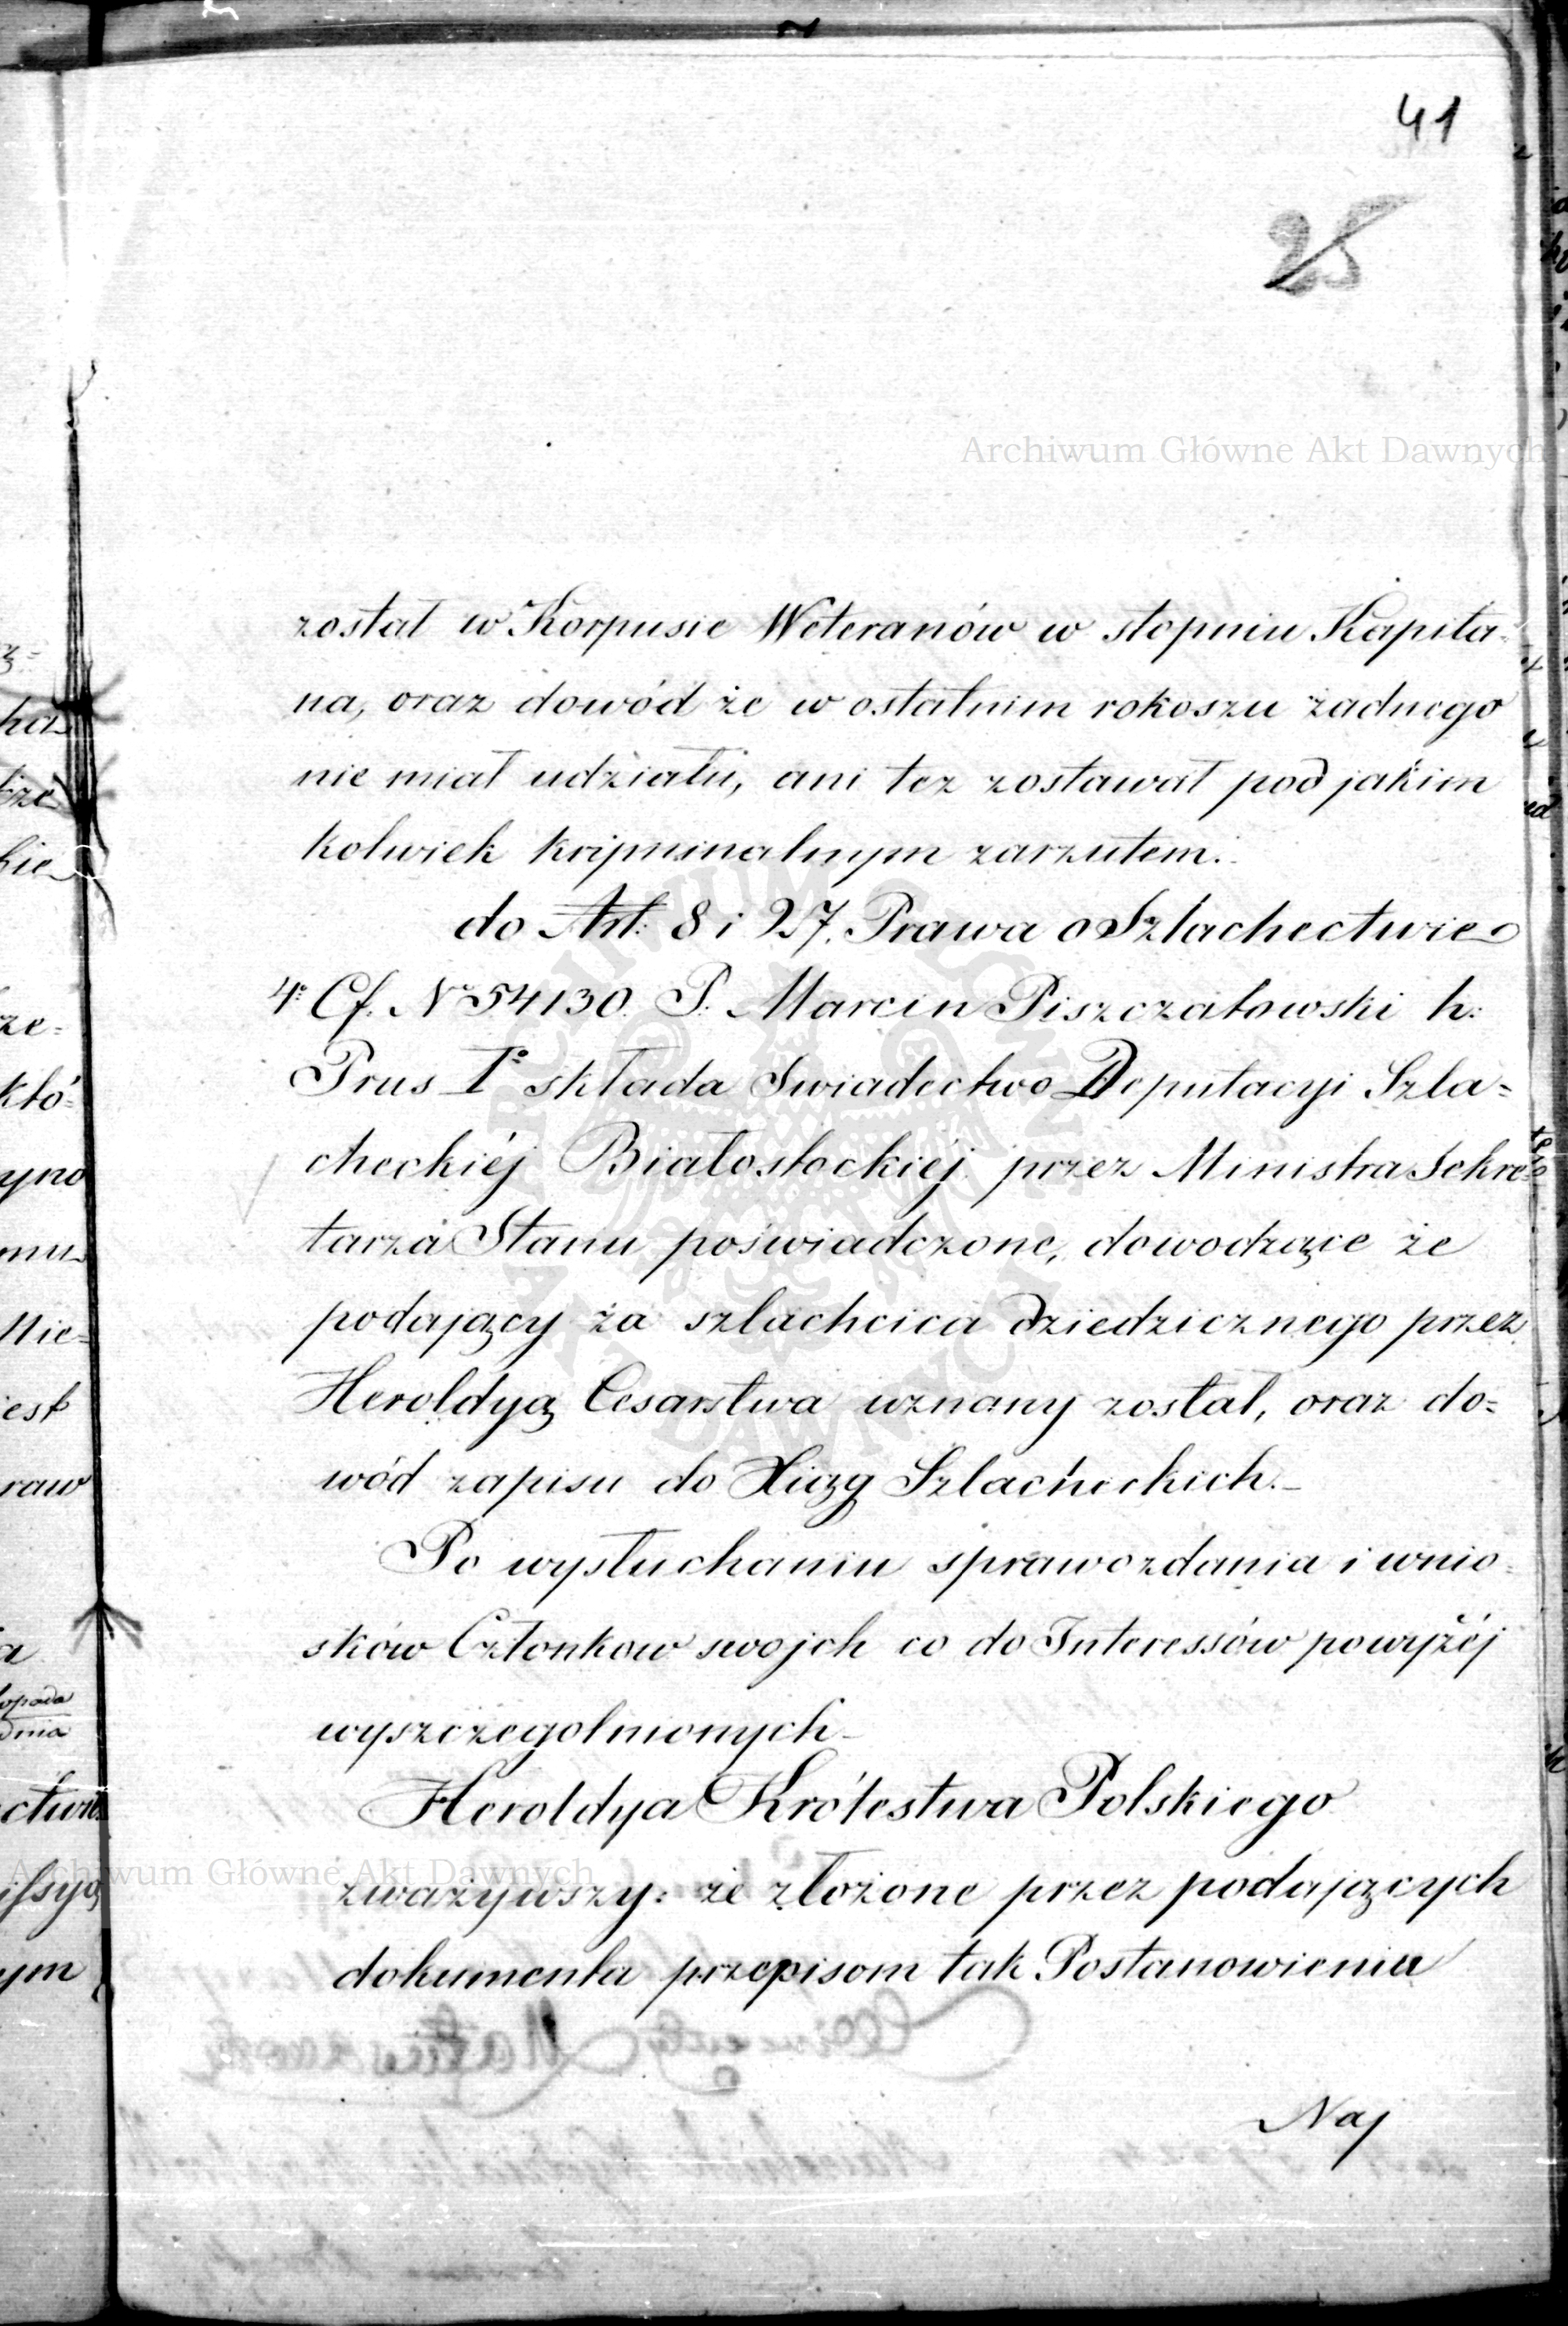 41
25
Archiwum Główne Akt Dawnych
został w Korpusie Weteranów w stopniu Kapita-
na, oraz dowód że w ostatnim rokoszu żadnego
nie miał udziału, ani tez zostawał pod jakim
kolwiek kryminalnym zarzutem.
do Art: 8 i 27. Prawa o Szlachectwie
4º Cf. Nº 54130. P. Marcin Piszczatowski h:
Prus Iº składa Swiadectwo Deputacyi Szla=
checkiéj Białostockiéj przez Ministra Sekre=
tarza Stanu poświadczone, dowodzące że
podający za szlachcica dziedzicznego przez
Heroldyą Cesarstwa uznany został, oraz do=
wód zapisu do Xiąg Szlacheckich.–
Po wysłuchaniu sprawozdania i wnio=
sków Członkow swojch co do Interessów powyżéj
wyszczegolnionych–
Heroldya Królestwa Polskiego
zważywszy: że złożone przez podających
dokumenta przepisom tak Postanowienia
Naj
Archiwum Główne Akt Dawnych
ARCHIWUM GŁÓWNE AKT DAWNYCH